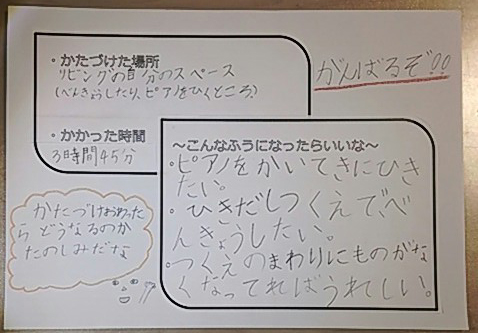 ・かたづけた場所
リビングの自分のスペース
(べんきょうしたり、ピアノをひくところ)
がんばるぞ!!
・かかった時間
3時間45分
～こんなふうになったらいいな～
・ピアノをかいてきにひき
たい。
・ひきだしつくえで、べ
んきょうしたい。
・つくえのまわりにものがな
くなってればうれしい。
かたづけおわった
らどうなるのか
たのしみだな